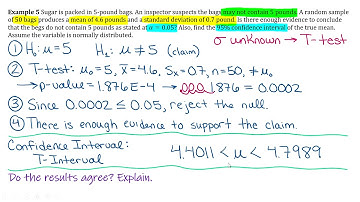 Example 5 Sugar is packed in 5-pound bags. An inspector suspects the bags may not contain 5 pounds. A random sample
of 50 bags produces a mean of 4.6 pounds and a standard deviation of 0.7 pound. Is there enough evidence to conclude
that the bags do not contain 5 pounds as stated at α = 0.05? Also, find the 95% confidence interval of the true mean.
Assume the variable is normally distributed.
σ unknown → T-test
① H₀: μ = 5 H₁: μ ≠ 5 (claim)
② T-test: μ₀ = 5, x̄ = 4.6, Sx = 0.7, n = 50, ≠ μ₀
→ p-value = 1.876E-4 → 0.0001876 = 0.0002
③ Since 0.0002 ≤ 0.05, reject the null.
④ There is enough evidence to support the claim.
Confidence Interval:
T-Interval
4.4011 < μ < 4.7989
Do the results agree? Explain.